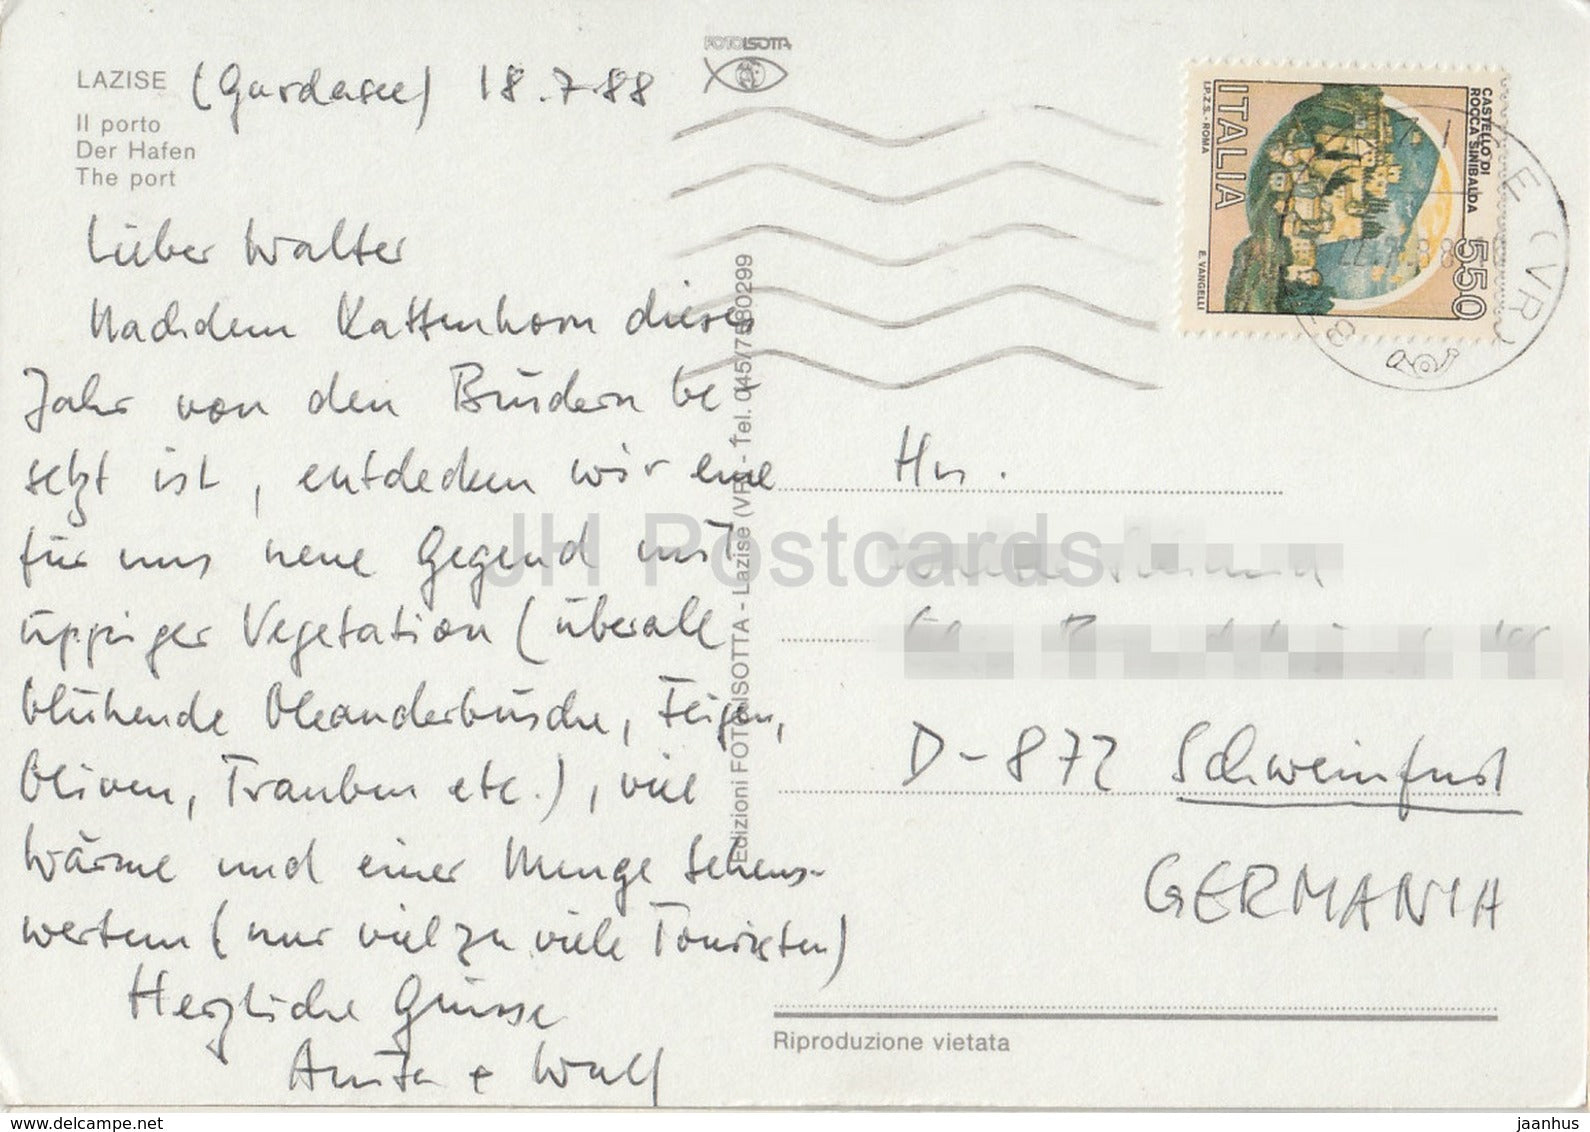 FOTOISOTTA
LAZISE (Gardasee) 18.7.88
Il porto
Der Hafen
The port
Lieber Walter
Nachdem Kattenhorn dieses
Jahr von den Brüdern be-
setzt ist, entdecken wir eine
für uns neue Gegend mit
üppiger Vegetation (überall
blühende Oleanderbüsche, Feigen,
Oliven, Trauben etc.), viel
Wärme und einer Menge Sehens-
wertem (nur viel zu viele Touristen)
Herzliche Grüsse
Anita + Wulf
Edizioni FOTO ISOTTA - Lazise (VR) - Tel. 045/7580299
ITALIA
I.P.Z.S. - ROMA
CASTELLO DI
ROCCA SINIBALDA
550
E. VANGELLI
E (VR)
Hrn.
D-872 Schweinfurt
GERMANIA
Riproduzione vietata
JH Postcards
www.delcampe.net
jaanhus